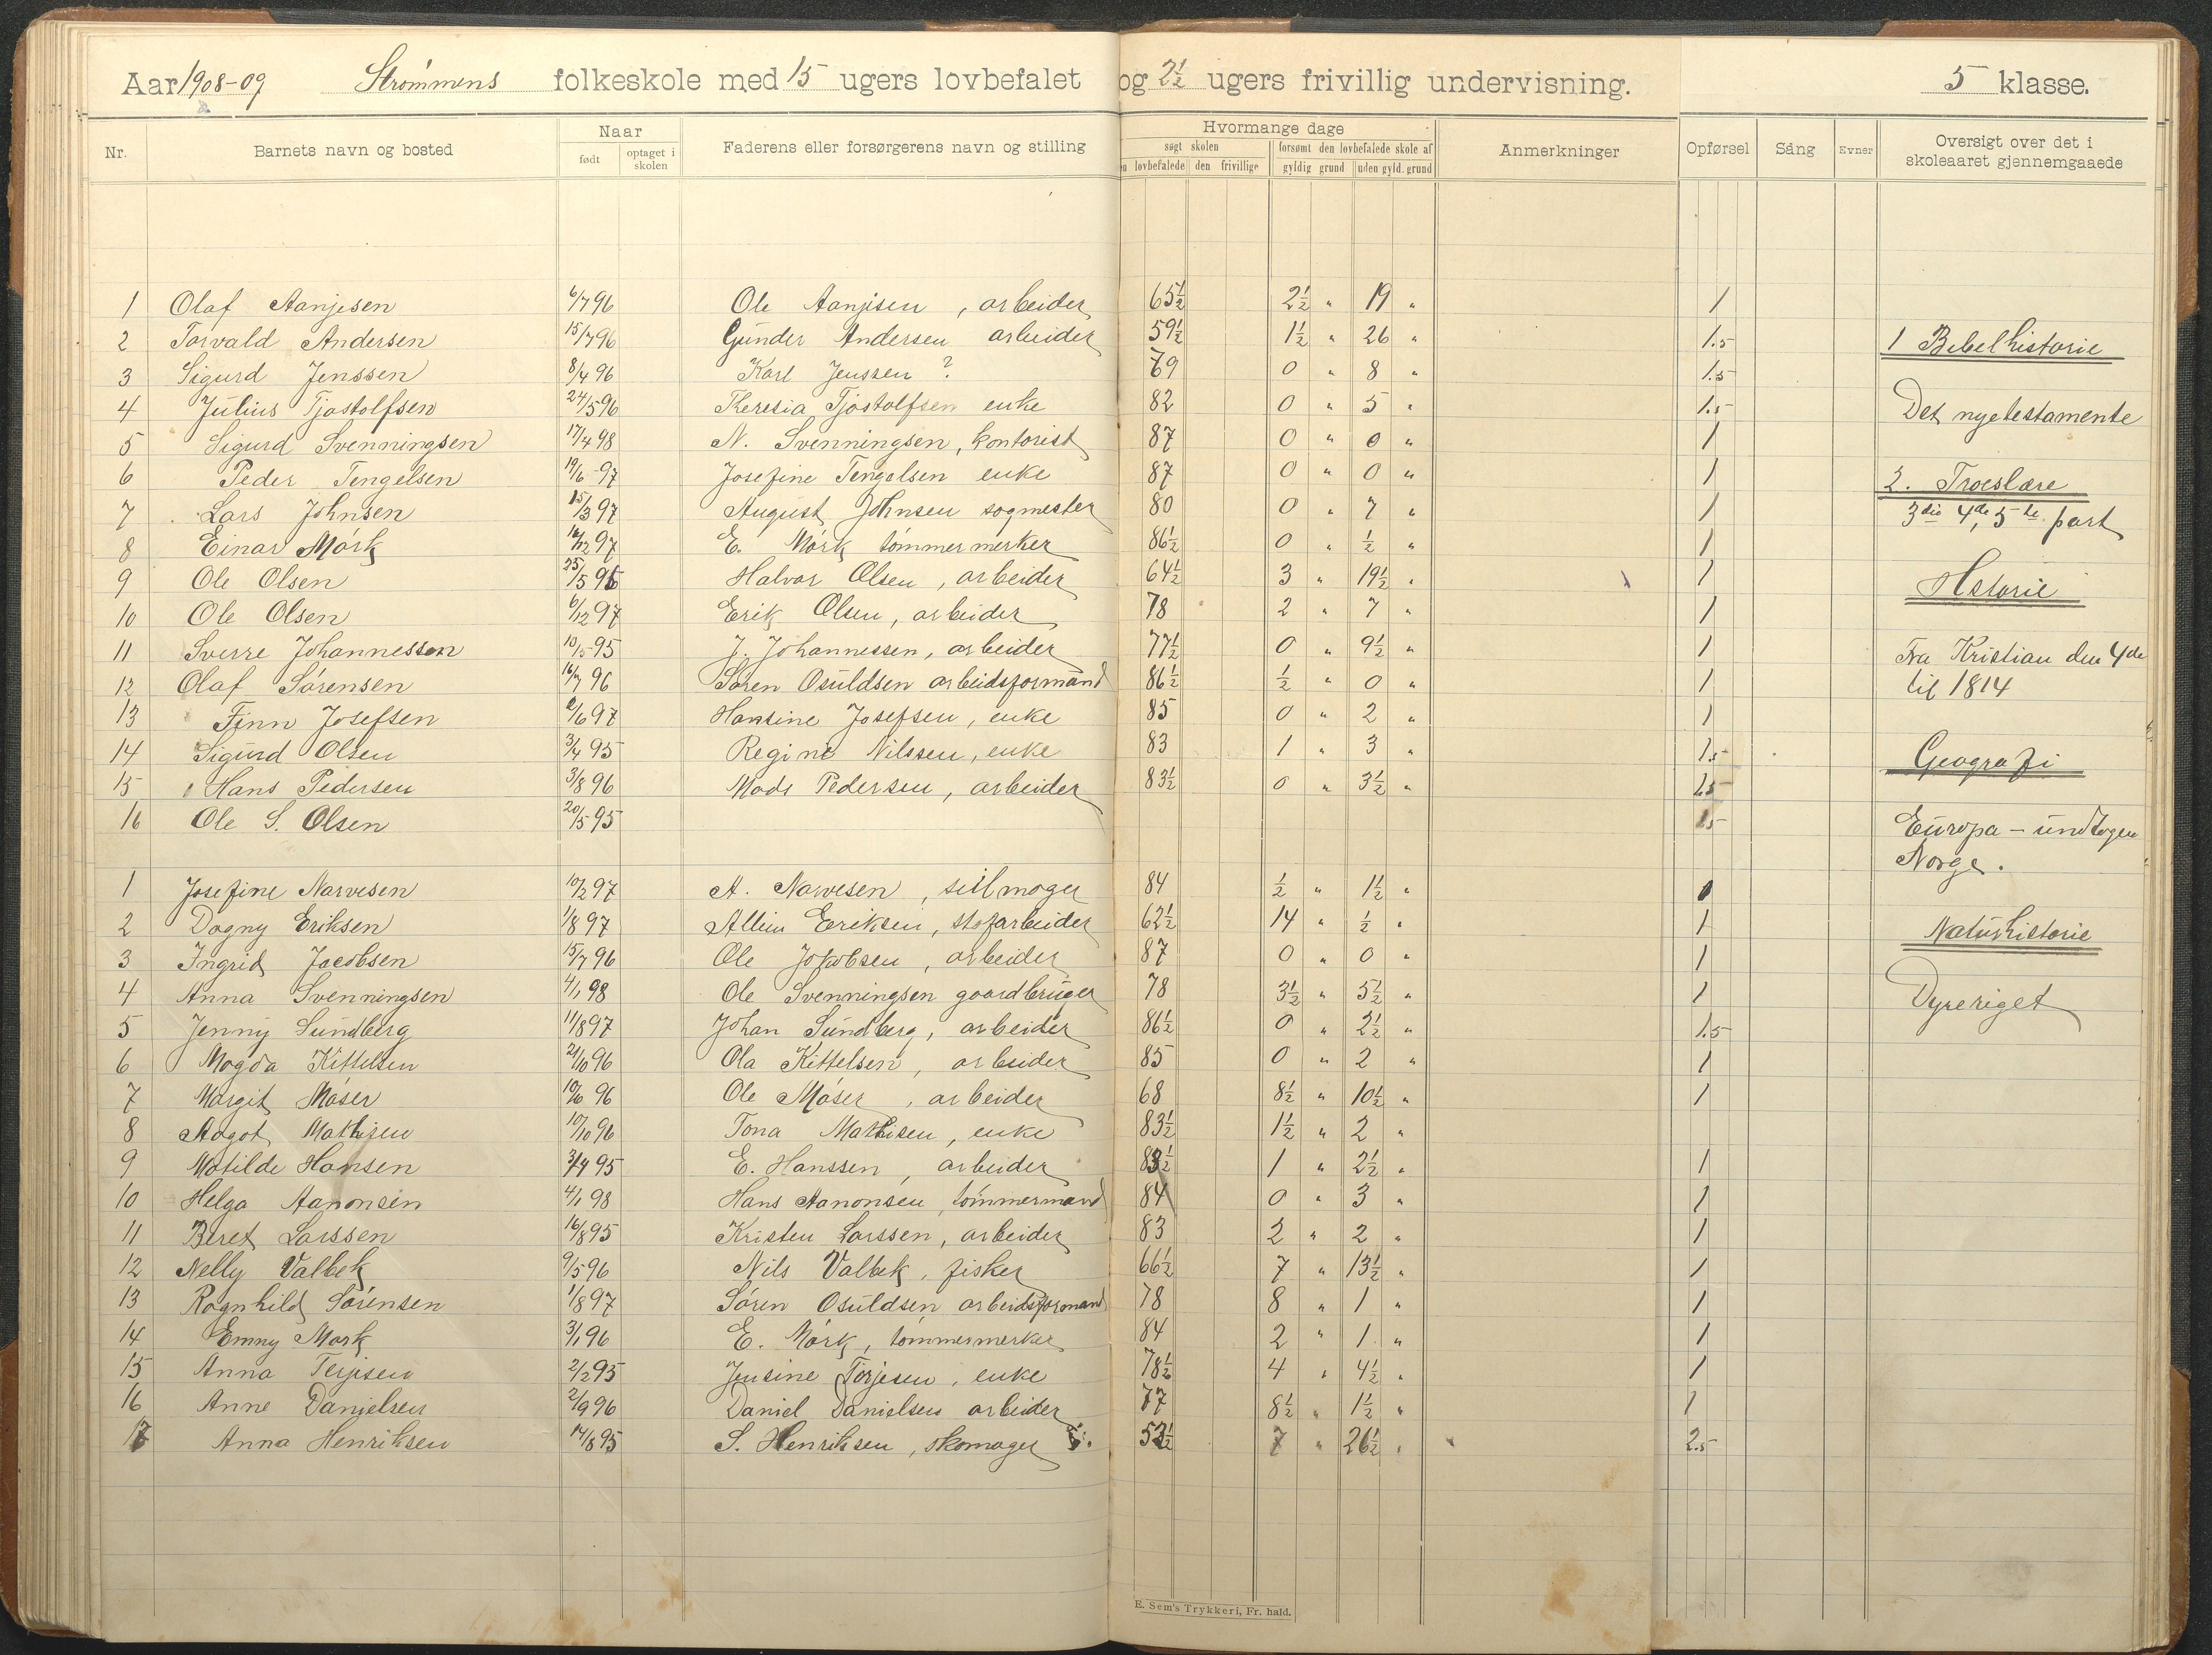 Aar 1908-09 Strømmens folkeskole med 15 ugers lovbefalet og 2½ ugers frivillig undervisning. 5 klasse.
Nr. Barnets navn og bosted Naar født optaget i skolen Faderens eller forsørgerens navn og stilling Hvormange dage søgt skolen lovbefalede den frivillige forsømt den lovbefalede skole af gyldig grund uden gyld. grund Anmerkninger Opførsel Sang Evner Oversigt over det i skoleaaret gjennemgaaede
1 Olaf Aanjesen 6/7 96 Ole Aanjesen, arbeider 65½ 2½ " 19 " 1
2 Torvald Andersen 15/7 96 Gunder Andersen arbeider 59½ 1½ " 26 " 1.5 1 Bibelhistorie
3 Sigurd Jenssen 8/4 96 Karl Jenssen ? 79 0 " 8 " 1.5
4 Julius Tjøstolfsen 24/5 96 Theresia Tjøstolfsen enke 82 0 " 5 " 1.5 Det nyetestamente
5 Sigurd Svenningsen 17/4 98 N. Svenningsen, kontorist 87 0 " 0 " 1
6 Peder Tengelsen 19/6 97 Josefine Tengelsen enke 87 0 " 0 " 1 2. Troeslære
7 Lars Johnsen 15/3 97 August Johnsen sagmester 80 0 " 7 " 1 3die 4de, 5te part
8 Einar Mørk 12 97 E. Mørk tømmermerker 86½ 0 " ½ " 1
9 Ole Olsen 25/5 96 Halvor Olsen, arbeider 64½ 3 " 19½ " 1 Hstorie
10 Ole Olsen 6/12 97 Erik Olsen, arbeider 78 2 " 7 " 1
11 Sverre Johannessen 10/5 95 J. Johannessen, arbeider 77½ 0 " 9½ " 1 Fra Kristian den 4de
12 Olaf Sørensen 16/7 96 Søren Osuldsen arbeidsformand 86½ ½ " 0 " 1 til 1814
13 Finn Josefsen 6 97 Hansine Josefsen, enke 85 0 " 2 " 1
14 Sigurd Olsen 3/4 95 Regine Nilssen, enke 83 1 " 3 " 1.5 Geografi
15 Hans Pedersen 3/8 96 Mads Pedersen, arbeider 83½ 0 " 3½ " 1.5
16 Ole S. Olsen 20/5 95 1.5 Europa - undtagen
Norge.
1 Josefine Narvesen 10/2 97 A. Narvesen, seilmager 84 ½ " 1½ " 1
2 Dagny Eriksen 1/8 97 Eriksen, arbeider 62½ 14 " ½ " 1 Naturhistorie
3 Ingrid Jacobsen 15/7 96 Ole Jakobsen, arbeider 87 0 " 0 " 1
4 Anna Svenningsen 4/1 98 Ole Svenningsen gaardbruger 78 3½ " 5½ " 1 Dyreriget
5 Jenny Sundberg 11/8 97 Johan Sundberg, arbeider 86½ 0 " 2½ " 1.5
6 Magda Kittelsen 21/10 96 Ola Kittelsen, arbeider 85 0 " 2 " 1
7 Margit Møser 10/6 96 Ole Møser, arbeider 68 8½ " 10½ " 1
8 Aagot Mathisen 10/10 96 Tona Mathisen, enke 83½ 1½ " 2 "
9 Matilde Hansen 3/4 95 E. Hanssen, arbeider 83½ 1 " 2½ " 1
10 Helga Aanonsen 4/1 98 Hans Aanonsen, tømmermand 84 0 " 3 " 1
11 Beret Larssen 16/8 95 Kristen Larssen, arbeider 83 2 " 2 " 1
12 Nelly Valbek 9/5 96 Nils Valbek, fisker 66½ 7 " 13½ " 1
13 Ragnhild Sørensen 1/8 97 Søren Osuldsen arbeidsformand 78 8 " 1 " 1
14 Emmy Mørk 3/1 96 E. Mørk, tømmermerker 84 2 " 1 " 1
15 Anna Terjesen 2/2 95 Jensine Torjesen, enke 78½ 4 " 4½ " 1
16 Anne Danielsen 2/9 96 Daniel Danielsen arbeider 77 8½ " 1½ " 1
17 Anna Henriksen 14/8 95 S. Henriksen, skomager 53½ 7 " 26½ " 2.5
E. Sem's Trykkeri, Fr. hald.